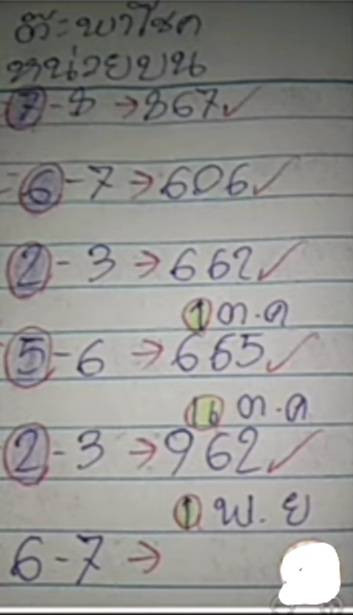 ต๊ะพาโชค
หน่วยบน
7-8→867✓
6-7→606✓
2-3→662✓
1 ต.ค
5-6→665✓
16 ต.ค
2-3→962✓
1 พ.ย
6-7→